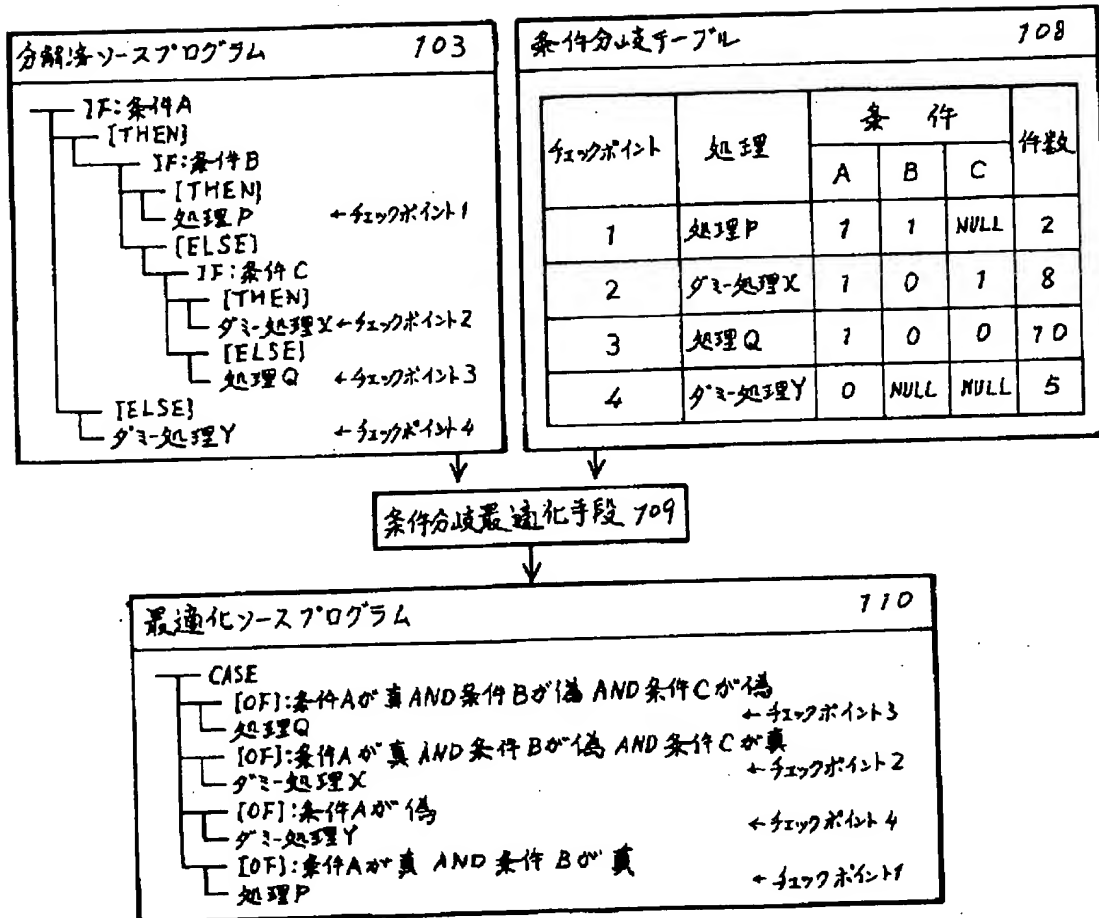 分解済ソースプログラム 103
IF:条件A
[THEN]
IF:条件B
[THEN]
処理P ←チェックポイント1
[ELSE]
IF:条件C
[THEN]
ダミー処理X←チェックポイント2
[ELSE]
処理Q ←チェックポイント3
[ELSE]
ダミー処理Y ←チェックポイント4
条件分岐テーブル 108
チェックポイント 処理 条件 件数
A B C
1 処理P 1 1 NULL 2
2 ダミー処理X 1 0 1 8
3 処理Q 1 0 0 10
4 ダミー処理Y 0 NULL NULL 5
条件分岐最適化手段 109
最適化ソースプログラム 110
CASE
[OF]:条件Aが真AND条件Bが偽AND条件Cが偽
処理Q ←チェックポイント3
[OF]:条件Aが真AND条件Bが偽AND条件Cが真
ダミー処理X ←チェックポイント2
[OF]:条件Aが偽
ダミー処理Y ←チェックポイント4
[OF]:条件Aが真AND条件Bが真
処理P ←チェックポイント1